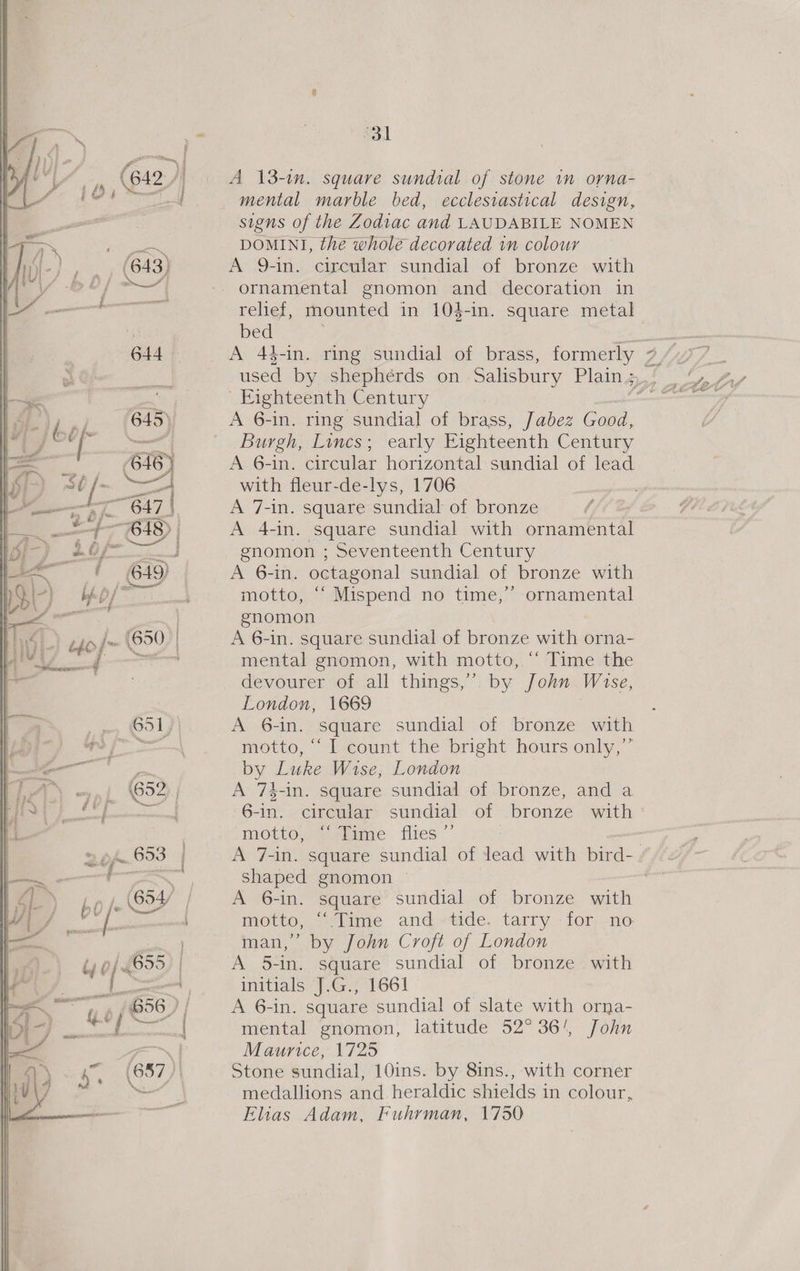 31
642 A 13-in. square sundial of stone in orna-
mental marble bed, ecclesiastical design,
signs of the Zodiac and LAUDABILE NOMEN
DOMINI, the whole decorated in colour
643 A 9-in. circular sundial of bronze with
ornamental gnomon and decoration in
relief, mounted in 10½-in. square metal
bed
644 A 4½-in. ring sundial of brass, formerly
used by shepherds on Salisbury Plain;
Eighteenth Century
645 A 6-in. ring sundial of brass, Jabez Good,
Burgh, Lincs; early Eighteenth Century
646 A 6-in. circular horizontal sundial of lead
with fleur-de-lys, 1706
647 A 7-in. square sundial of bronze
648 A 4-in. square sundial with ornamental
gnomon ; Seventeenth Century
649 A 6-in. octagonal sundial of bronze with
motto, “ Mispend no time,” ornamental
gnomon
650 A 6-in. square sundial of bronze with orna-
mental gnomon, with motto, “ Time the
devourer of all things,” by John Wise,
London, 1669
651 A 6-in. square sundial of bronze with
motto, “ I count the bright hours only,”
by Luke Wise, London
652 A 7½-in. square sundial of bronze, and a
6-in. circular sundial of bronze with
motto, “ Time flies ”
653 A 7-in. square sundial of lead with bird-
shaped gnomon
654 A 6-in. square sundial of bronze with
motto, “ Time and tide tarry for no
man,” by John Croft of London
655 A 5-in. square sundial of bronze with
initials J.G., 1661
656 A 6-in. square sundial of slate with orna-
mental gnomon, latitude 52° 36′, John
Maurice, 1725
657 Stone sundial, 10ins. by 8ins., with corner
medallions and heraldic shields in colour,
Elias Adam, Fuhrman, 1750